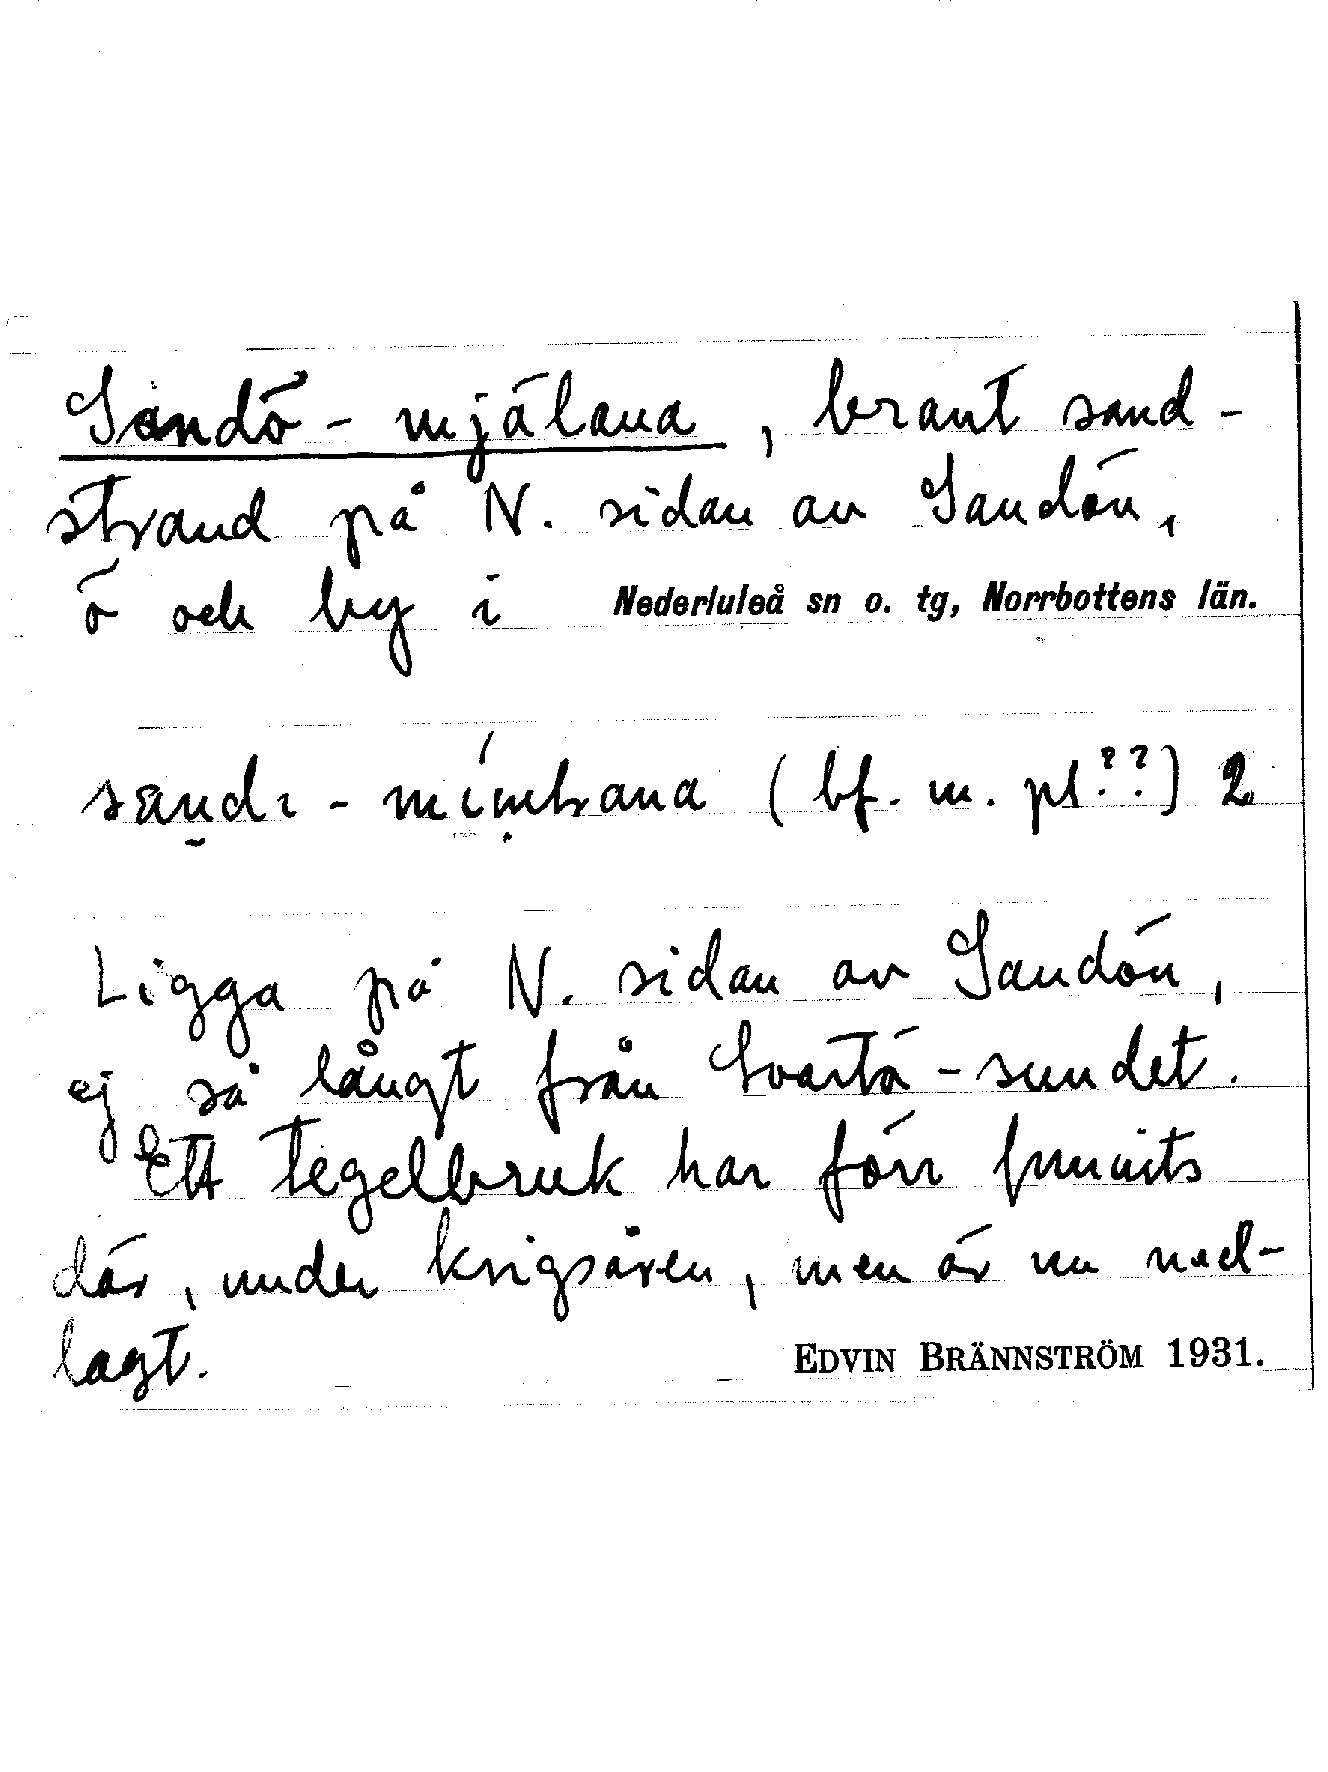 Sandö-mjälana, brant sand-
strand på N. sidan av Sandön,
ö och by i Nederluleå sn o. tg, Norrbottens län.
(bf. m. pl.??) 2
Ligga på N. sidan av Sandön,
ej så långt från Svartö-sundet.
Ett tegelbruk har förr funnits
där, under krigsåren, men är nu ned-
lagt. EDVIN BRÄNNSTRÖM 1931.